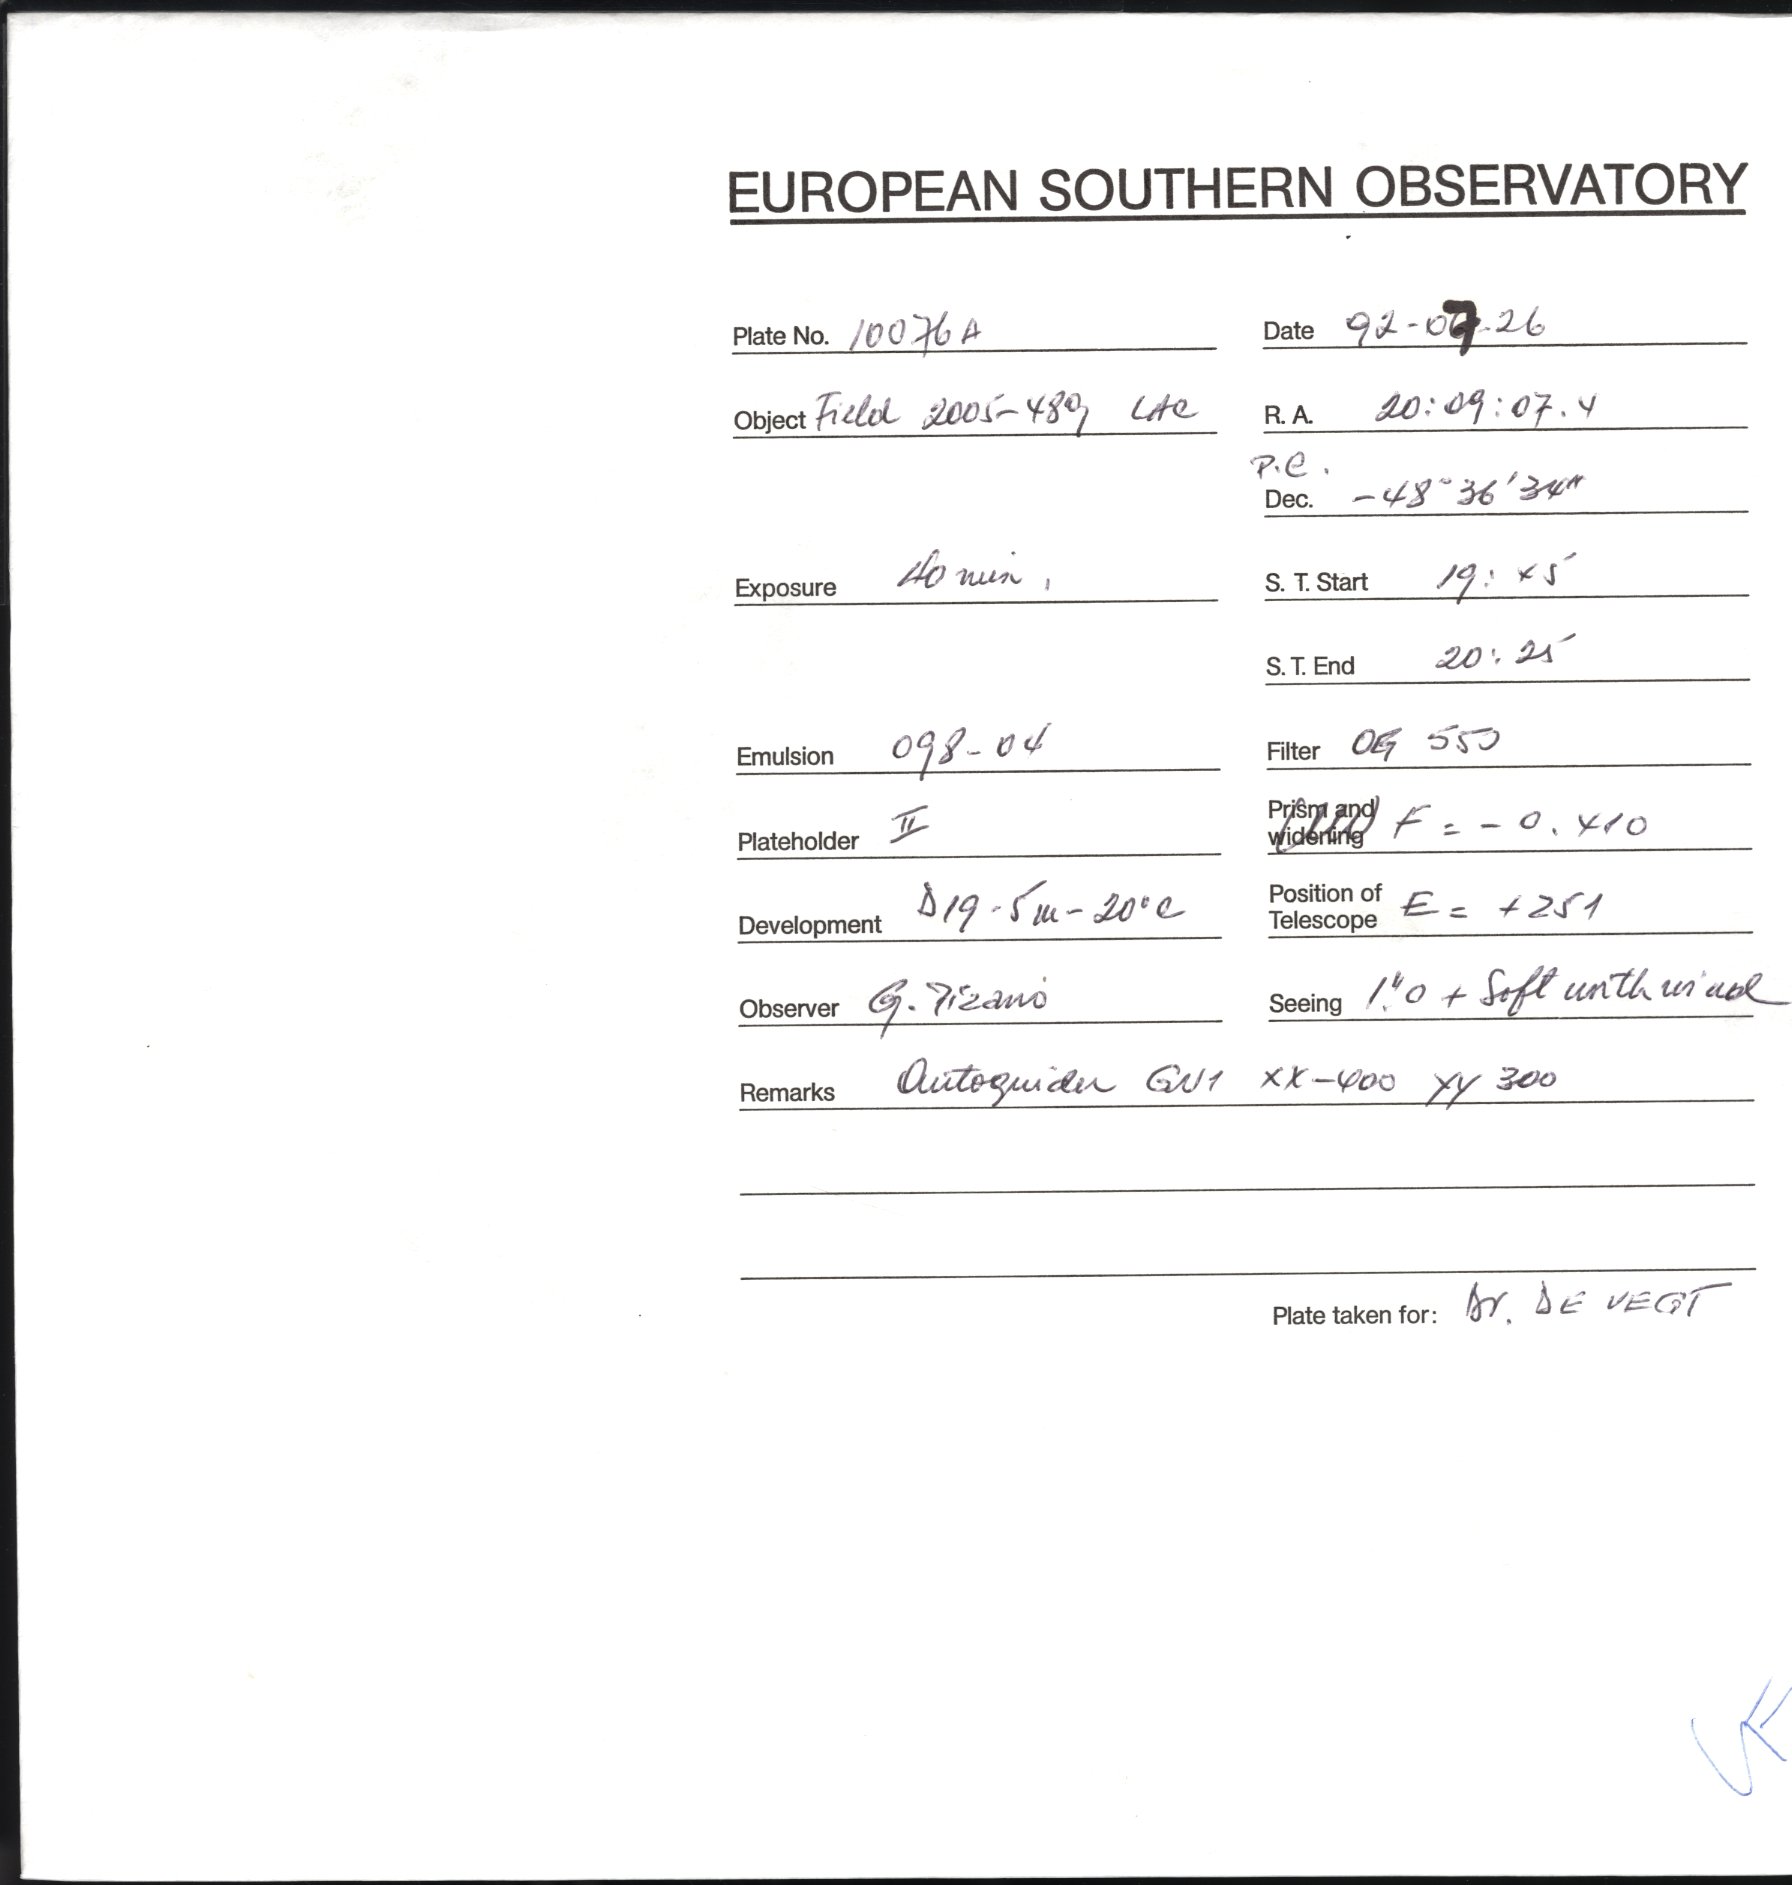 EUROPEAN SOUTHERN OBSERVATORY
Plate No. 10076A Date 92-07-26
Object Field 2005-489 LAC R. A. 20:09:07.4
P.C.
Dec. -48° 36' 34"
Exposure 40 min. S. T. Start 19:45
S. T. End 20:25
Emulsion 098-04 Filter OG 550
Plateholder II Prism and widening F = -0.410
Development D19-5m-20°C Position of Telescope E = +251
Observer G. Pizarro Seeing 1".0 + Soft with wind
Remarks Autoguider GN1 XX-400 YY 300
Plate taken for: Dr. DE VEGT